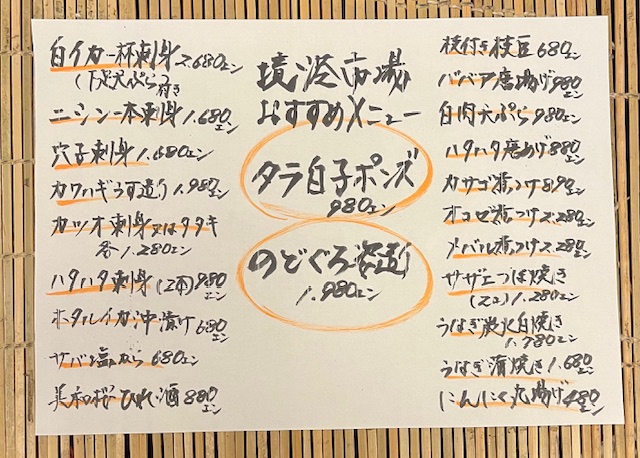 白イカ一杯刺身 2.680エン
(下足天ぷら付き)
ニシン一本刺身 1.680エン
穴子刺身 1.680エン
カワハギうす造り 1.980エン
カツオ刺身又はタタキ
各1.280エン
ハタハタ刺身(2本) 980エン
ホタルイカ沖漬け 680エン
サバ塩から 680エン
美和桜ひれ酒 880エン
境港市場
おすすめメニュー
タラ白子ポンズ
980エン
のどぐろ姿造り
1.980エン
枝付き枝豆 680エン
ババア唐揚げ 980エン
白肉天ぷら 980エン
ハタハタ唐あげ 880エン
カサゴ煮つけ 890エン
オコゼ煮つけ 2.280エン
メバル煮つけ 2.280エン
サザエつぼ焼き
(2コ) 1.280エン
うなぎ炭火白焼き
1.780エン
うなぎ蒲焼き 1.680エン
にんにく丸揚げ 480エン